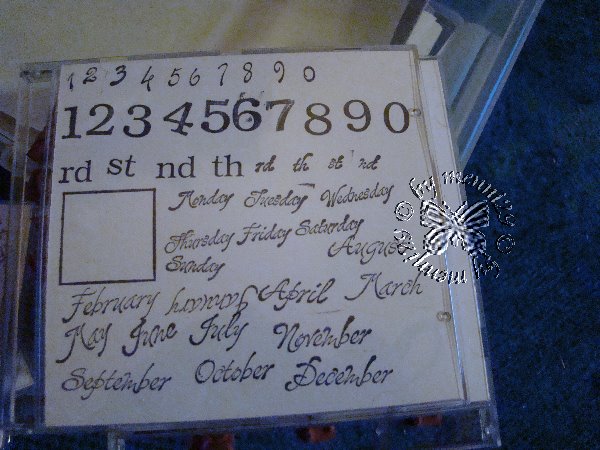 1 2 3 4 5 6 7 8 9 0
1234567890
rd st nd th rd th st nd
Monday Tuesday Wednesday
Thursday Friday Saturday
Sunday August
February January April March
May June July November
September October December